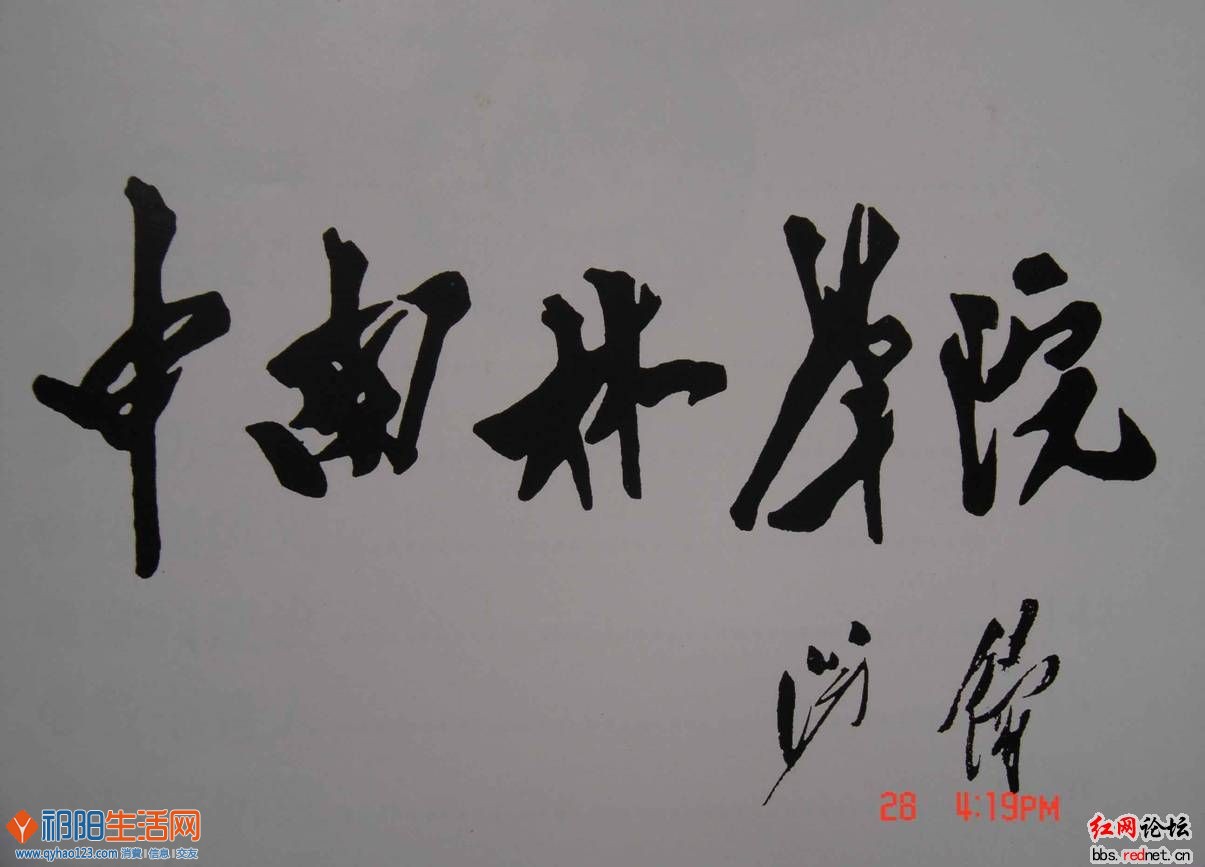 中南林学院
陶铸
28 4:19PM
祁阳生活网
www.qyhao123.com 消费 | 信息 | 交友
红网论坛
bbs.rednet.cn